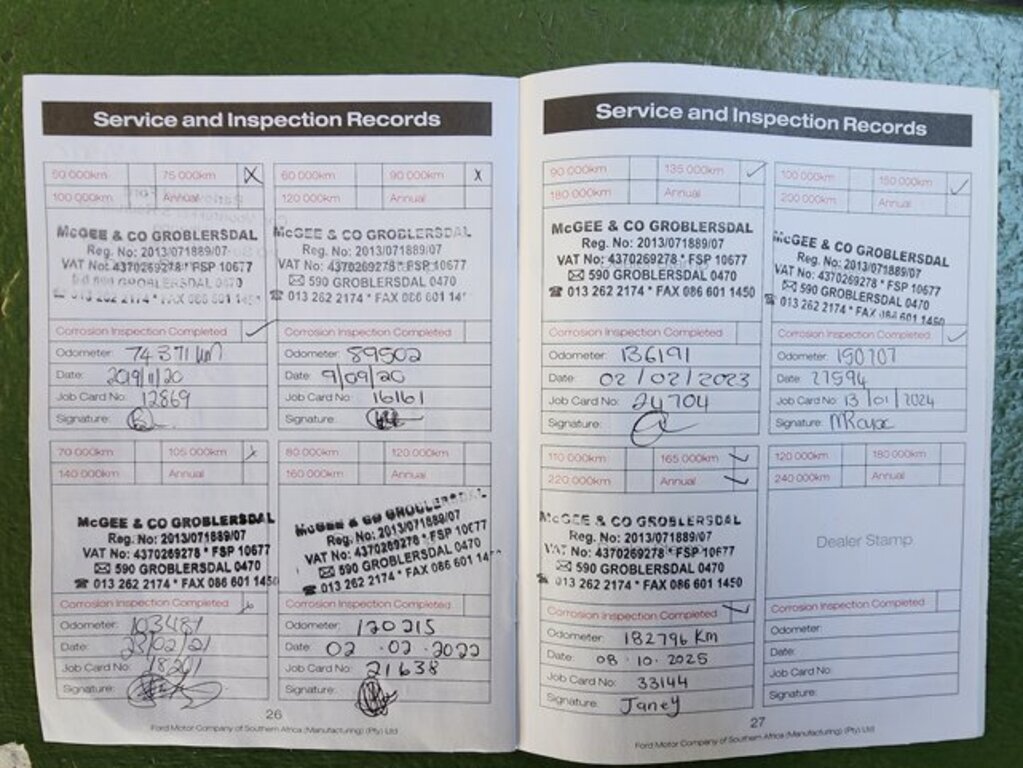 Service and Inspection Records
50 000km 75 000km X
100 000km Annual
McGEE & CO GROBLERSDAL
Reg. No: 2013/071889/07
VAT No: 4370269278 * FSP 10677
590 GROBLERSDAL 0470
013 262 2174 * FAX 086 601 145
Corrosion Inspection Completed ✓
Odometer: 74 371 km
Date: 2019/11/20
Job Card No: 12869
Signature:
60 000km 90 000km X
120 000km Annual
McGEE & CO GROBLERSDAL
Reg. No: 2013/071889/07
VAT No: 4370269278 * FSP 10677
590 GROBLERSDAL 0470
013 262 2174 * FAX 086 601 14
Corrosion Inspection Completed
Odometer: 89502
Date: 9/09/20
Job Card No: 16161
Signature:
70 000km 105 000km
140 000km Annual
McGEE & CO GROBLERSDAL
Reg. No: 2013/071889/07
VAT No: 4370269278 * FSP 10677
590 GROBLERSDAL 0470
013 262 2174 * FAX 086 601 1450
Corrosion Inspection Completed
Odometer: 103481
Date: 23/02/21
Job Card No:
Signature:
80 000km 120 000km
160 000km Annual
McGEE & CO GROBLERSDAL
Reg. No: 2013/071889/07
VAT No: 4370269278 * FSP 10677
590 GROBLERSDAL 0470
013 262 2174 * FAX 086 601 145
Corrosion Inspection Completed
Odometer: 120215
Date: 02 .02 .2022
Job Card No: 21638
Signature:
26
Ford Motor Company of Southern Africa (Manufacturing) (Pty) Ltd
Service and Inspection Records
90 000km 135 000km ✓
180 000km Annual
McGEE & CO GROBLERSDAL
Reg. No: 2013/071889/07
VAT No: 4370269278 * FSP 10677
590 GROBLERSDAL 0470
013 262 2174 * FAX 086 601 1450
Corrosion Inspection Completed
Odometer: 136191
Date: 02/02/2023
Job Card No: 24704
Signature:
100 000km 150 000km ✓
200 000km Annual
McGEE & CO GROBLERSDAL
Reg. No: 2013/071889/07
VAT No: 4370269278 * FSP 10677
590 GROBLERSDAL 0470
013 262 2174 * FAX 086 601 1450
Corrosion Inspection Completed ✓
Odometer: 150707
Date: 27594
Job Card No: 13/01/2024
Signature:
110 000km 165 000km ✓
220 000km Annual ✓
McGEE & CO GROBLERSDAL
Reg. No: 2013/071889/07
VAT No: 4370269278 * FSP 10677
590 GROBLERSDAL 0470
013 262 2174 * FAX 086 601 1450
Corrosion Inspection Completed ✓
Odometer: 182796 Km
Date: 08 . 10 . 2025
Job Card No: 33144
Signature: Janey
120 000km 180 000km
240 000km Annual
Dealer Stamp
Corrosion Inspection Completed
Odometer:
Date:
Job Card No:
Signature:
27
Ford Motor Company of Southern Africa (Manufacturing) (Pty) Ltd